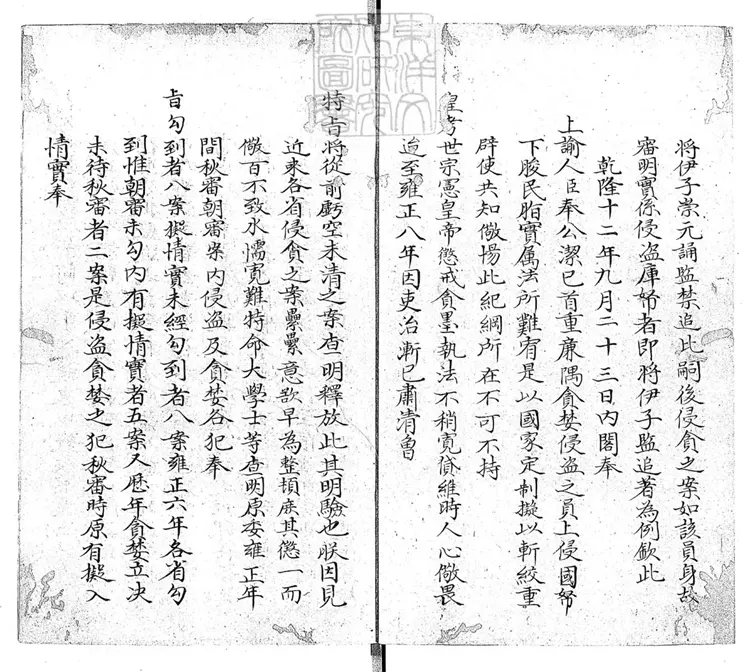 將伊子崇元誦監禁追比嗣後侵貪之案如該員身故
審明實係侵盜庫帑者即將伊子監追著為例欽此
乾隆十二年九月二十三日內閣奉
上諭人臣奉公潔己首重廉隅貪婪侵盜之員上侵國帑
下朘民脂實属法所難宥是以國家定制擬以斬絞重
辟使共知儆惕此紀綱所在不可不持
皇考世宗憲皇帝懲戒貪墨執法不稍寬貸維時人心儆畏
迨至雍正八年因吏治漸已肅清曾
特旨將從前虧空未清之案查明釋放此其明驗也朕因見
近來各省侵貪之案纍纍意欲早為整頓庶其懲一而
儆百不致水懦寬難特命大學士等查明原委雍正年
間秋審朝審案內侵盜及貪婪各犯奉
旨勾到者八案擬情實未經勾到者八案雍正六年各省勾
到惟朝審未勾內有擬情實者五案又歷年貪婪立决
未待秋審者二案是侵盜貪婪之犯秋審時原有擬入
情實奉